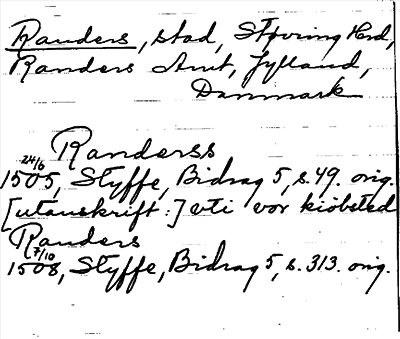 Randers, stad, Støvring Hrd,
Randers Amt, Jylland,
Danmark
Randerss
24/6
1505, Styffe, Bidrag 5, s. 49. orig.
[utanskrift:] vti vor kiöbsted
Randers
7/10
1508, Styffe, Bidrag 5, s. 313. orig.